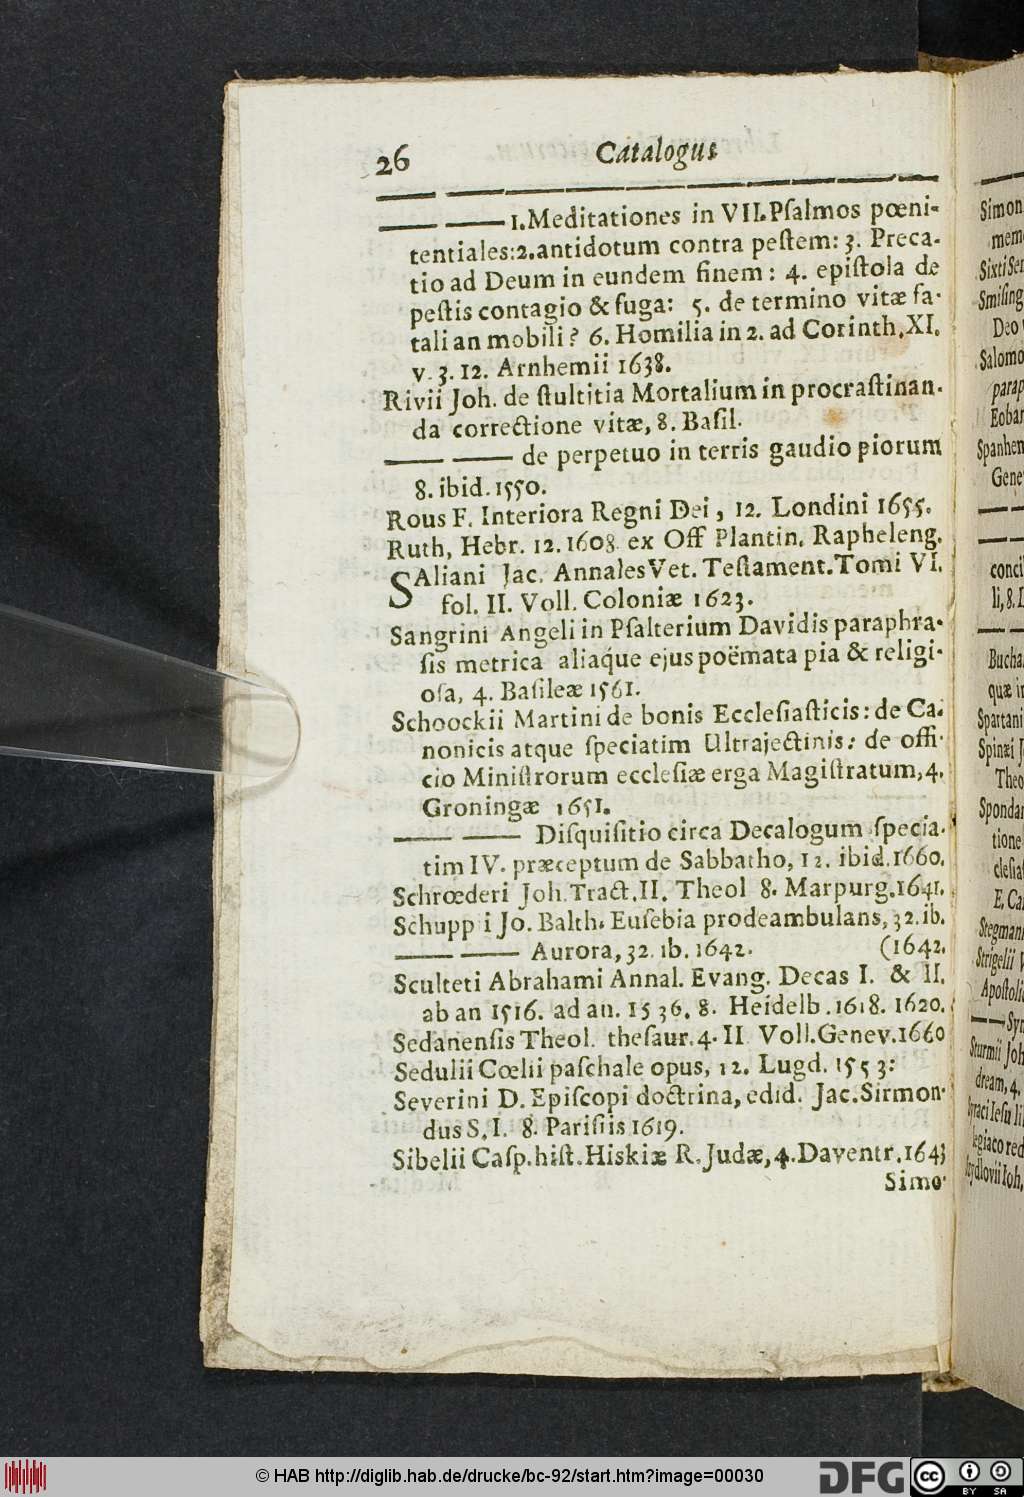 26 Catalogus
—— —— 1. Meditationes in VII. Psalmos pœni-
tentiales: 2. antidotum contra pestem: 3. Preca-
tio ad Deum in eundem finem: 4. epistola de
pestis contagio & fuga: 5. de termino vitæ fa-
tali an mobili? 6. Homilia in 2. ad Corinth. XI.
v. 3. 12. Arnhemii 1638.
Rivii Joh. de stultitia Mortalium in procrastinan-
da correctione vitæ, 8. Basil.
—— —— de perpetuo in terris gaudio piorum
8. ibid. 1550.
Rous F. Interiora Regni Dei, 12. Londini 1655.
Ruth, Hebr. 12. 1608. ex Off Plantin. Rapheleng.
SAliani Jac. Annales Vet. Testament. Tomi VI.
fol. II. Voll. Coloniæ 1623.
Sangrini Angeli in Psalterium Davidis paraphra-
sis metrica aliaq́ue ejus poëmata pia & religi-
osa, 4. Basileæ 1561.
Schoockii Martini de bonis Ecclesiasticis: de Ca-
nonicis atque speciatim Ultrajectinis: de offi-
cio Ministrorum ecclesiæ erga Magistratum, 4.
Groningæ 1651.
—— —— Disquisitio circa Decalogum specia-
tim IV. præceptum de Sabbatho, 12. ibid. 1660.
Schrœderi Joh. Tract. II. Theol 8. Marpurg. 1641.
Schuppi Jo. Balth. Eusebia prodeambulans, 32. ib.
—— —— Aurora, 32. ib. 1642. (1642.
Sculteti Abrahami Annal. Evang. Decas I. & II.
ab an 1516. ad an. 1536. 8. Heidelb. 1618. 1620.
Sedanensis Theol. thesaur. 4. II Voll. Genev. 1660
Sedulii Cœlii paschale opus, 12. Lugd. 1553:
Severini D. Episcopi doctrina, edid. Jac. Sirmon-
dus S. I. 8. Parisiis 1619.
Sibelii Casp. hist. Hiskiæ R. Judæ, 4. Daventr. 1643
Simo-
Simon
mem
Sixti Sen
Smising
Deo
Salomo
parap
Eoban
Spanhem
Gene
conci
li, 8. L
Bucha
quæ in
Spartani
Spinæi J
Theo
Spondan
tione
clesia
E. Ca
Stegmann
Strigelii V
Apostoli
—— Syn
Sturmii Joh
dream, 4.
Syraci Iesu li
legiaco red
Szydlovii Ioh,
© HAB http://diglib.hab.de/drucke/bc-92/start.htm?image=00030
DFG
cc
BY SA